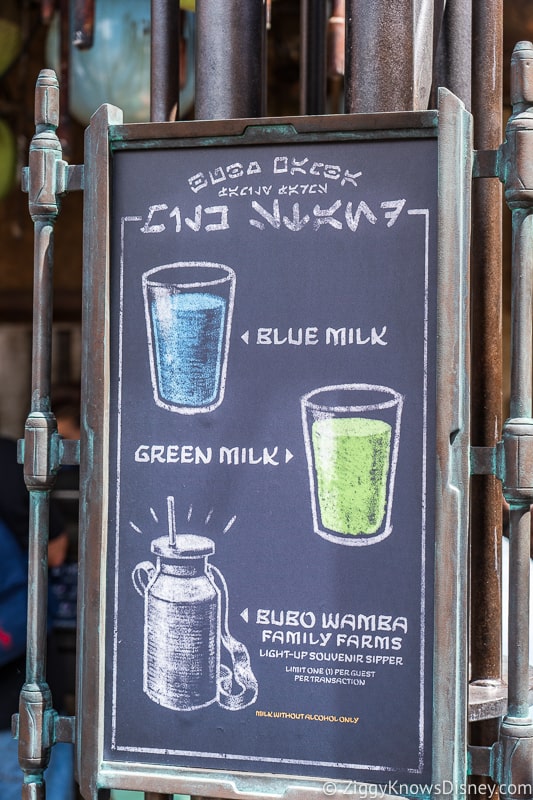 BLUE MILK
GREEN MILK
BUBO WAMBA
FAMILY FARMS
LIGHT-UP SOUVENIR SIPPER
LIMIT ONE (1) PER GUEST
PER TRANSACTION
MILK WITHOUT ALCOHOL ONLY
© ZiggyKnowsDisney.com